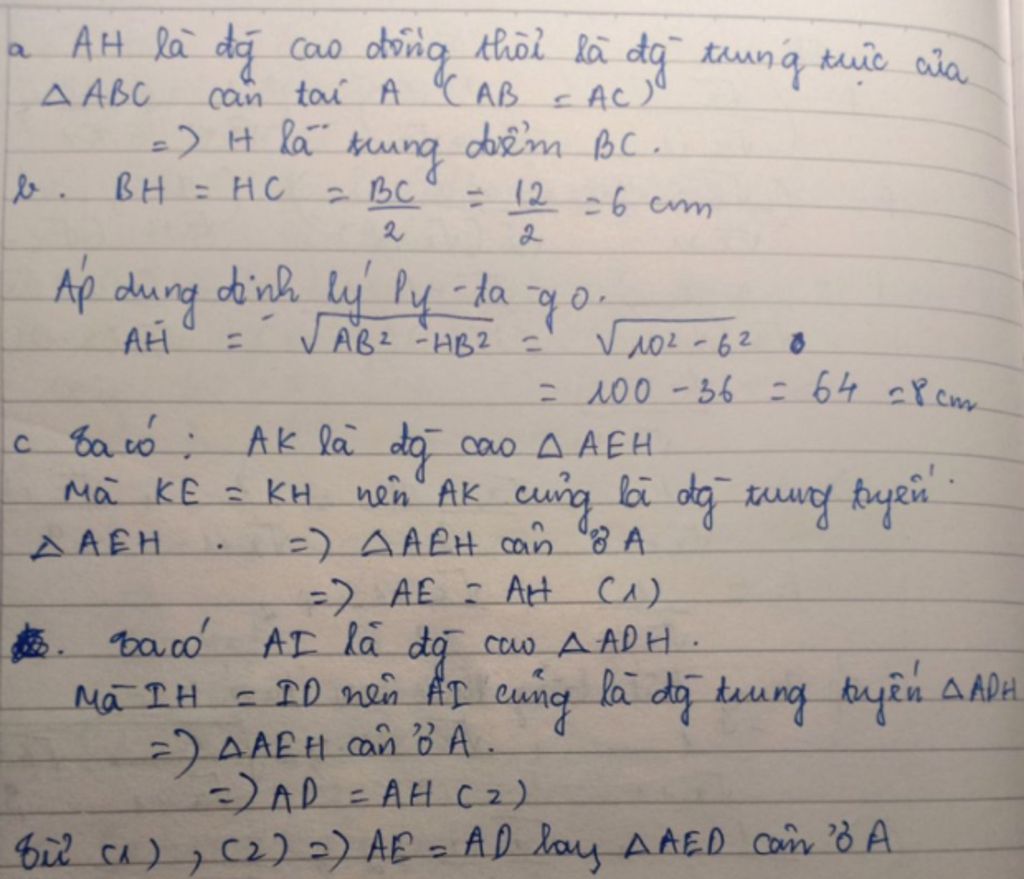 a AH là đg̃ cao đồng thời là đg̃ trung trực của
△ABC cân tại A (AB = AC)
=> H là trung điểm BC.
b. BH = HC = BC/2 = 12/2 = 6 cm
Áp dụng định lý Py-ta-go.
AH = √(AB² - HB²) = √(10² - 6²)
= 100 - 36 = 64 = 8 cm
c Ta có : AK là đg̃ cao △AEH
Mà KE = KH nên AK cũng là đg̃ trung tuyến
△AEH . => △AEH cân ở A
=> AE = AH (1)
. Ta có AI là đg̃ cao △ADH.
Mà IH = ID nên AI cũng là đg̃ trung tuyến △ADH
=> △AEH cân ở A.
=> AD = AH (2)
Từ (1), (2) => AE = AD hay △AED cân ở A